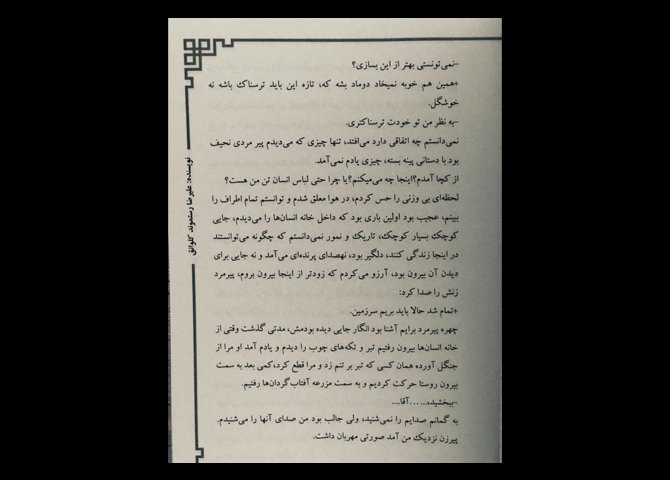 -نمی‌تونستی بهتر از این بسازی؟
+همین هم خوبه نمیخاد دوماد بشه که، تازه این باید ترسناک باشه نه
خوشگل.
-به نظر من تو خودت ترسناکتری.
نمی‌دانستم چه اتفاقی دارد می‌افتد، تنها چیزی که می‌دیدم پیر مردی نحیف
بود با دستانی پینه بسته، چیزی یادم نمی‌آمد.
از کجا آمدم؟اینجا چه می‌میکنم؟یا چرا حتی لباس انسان تن من هست؟
لحظه‌ای بی وزنی را حس کردم، در هوا معلق شدم و توانستم تمام اطراف را
ببینم، عجیب بود اولین باری بود که داخل خانه انسان‌ها را می‌دیدم، جایی
کوچک بسیار کوچک، تاریک و نمور نمی‌دانستم که چگونه می‌توانستند
در اینجا زندگی کنند، دلگیر بود، نهصدای پرنده‌ای می‌آمد و نه جایی برای
دیدن آن بیرون بود، آرزو می‌کردم که زودتر از اینجا بیرون بروم، پیرمرد
زنش را صدا کرد:
+تمام شد حالا باید بریم سرزمین.
چهره پیرمرد برایم آشنا بود انگار جایی دیده بودمش، مدتی گذشت وقتی از
خانه انسان‌ها بیرون رفتیم تبر و تکه‌های چوب را دیدم و یادم آمد او مرا از
جنگل آورده همان کسی که تبر بر تنم زد و مرا قطع کرد،کمی بعد به سمت
بیرون روستا حرکت کردیم و به سمت مزرعه آفتاب‌گردان‌ها رفتیم.
-ببخشید،......آقا....
به گمانم صدایم را نمی‌شنید، ولی جالب بود من صدای آنها را می‌شنیدم.
پیرزن نزدیک من آمد صورتی مهربان داشت.
نویسنده: علیرضا رستموند کلوانق